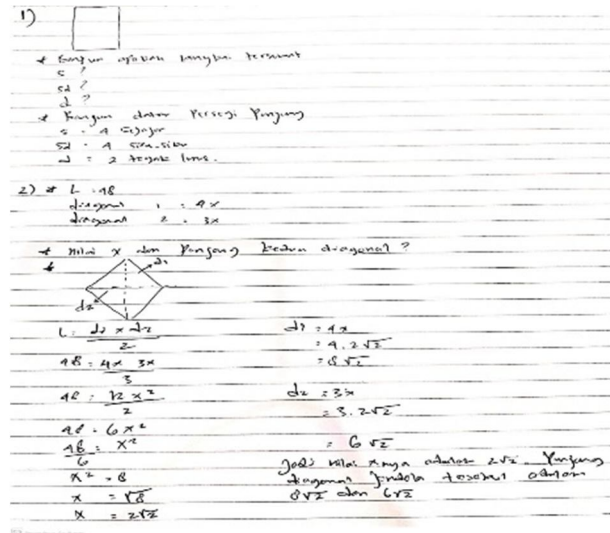 1)
* Bangun apakah bangun tersebut
s ?
sd ?
d ?
* Bangun datar Persegi Panjang
s = 4 sejajar
sd = 4 siku-siku
d = 2 tegak lurus.
2) * L = 48
diagonal 1 = 4x
diagonal 2 = 3x
* nilai x dan Panjang kedua diagonal ?
*
d1
d2
L = d1 x d2
2
48 = 4x 3x
3
48 = 12 x²
2
48 = 6x²
48 = x²
6
x² = 8
x = √8
x = 2√2
d1 = 4x
= 4.2√2
= 8√2
d2 = 3x
= 3.2√2
= 6√2
Jadi nilai x nya adalah 2√2. Panjang
diagonal Jendela tersebut adalah
8√2 dan 6√2